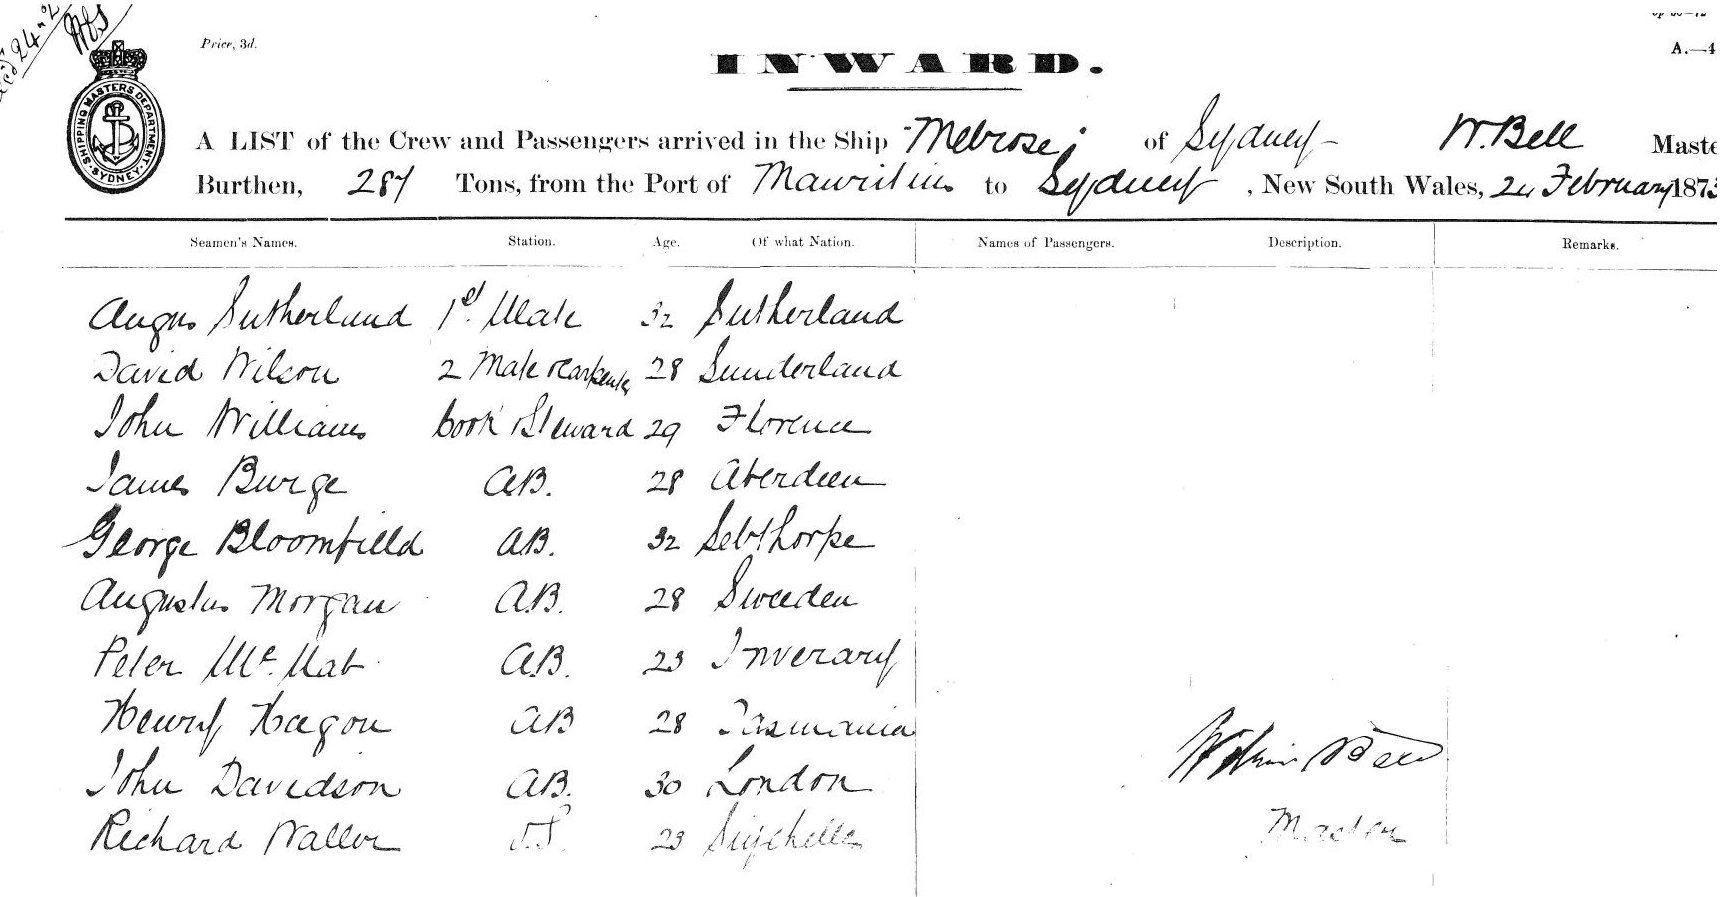 Price, 3d.
A.—4
INWARD.
SHIPPING MASTERS DEPARTMENT SYDNEY
A LIST of the Crew and Passengers arrived in the Ship "Melrose" of Sydney W. Bell Maste
Burthen, 287 Tons, from the Port of Mauritius to Sydney, New South Wales, 24 February 1873
Seamen's Names. Station. Age. Of what Nation. Names of Passengers. Description. Remarks.
Angus Sutherland 1st Mate 32 Sutherland
David Wilson 2 Mate & Carpenter 28 Sunderland
John Williams Cook & Steward 29 Florence
James Burge AB. 28 Aberdeen
George Bloomfield AB. 32 Sebthorpe
Augustus Morgan A.B. 28 Sweeden
Peter Mc.Nab A.B. 23 Inverary
Henry Hagon AB 28 Tasmania
John Davidson AB. 30 London
Richard Waller O.S. 23 Siychelle
William Bell
Master